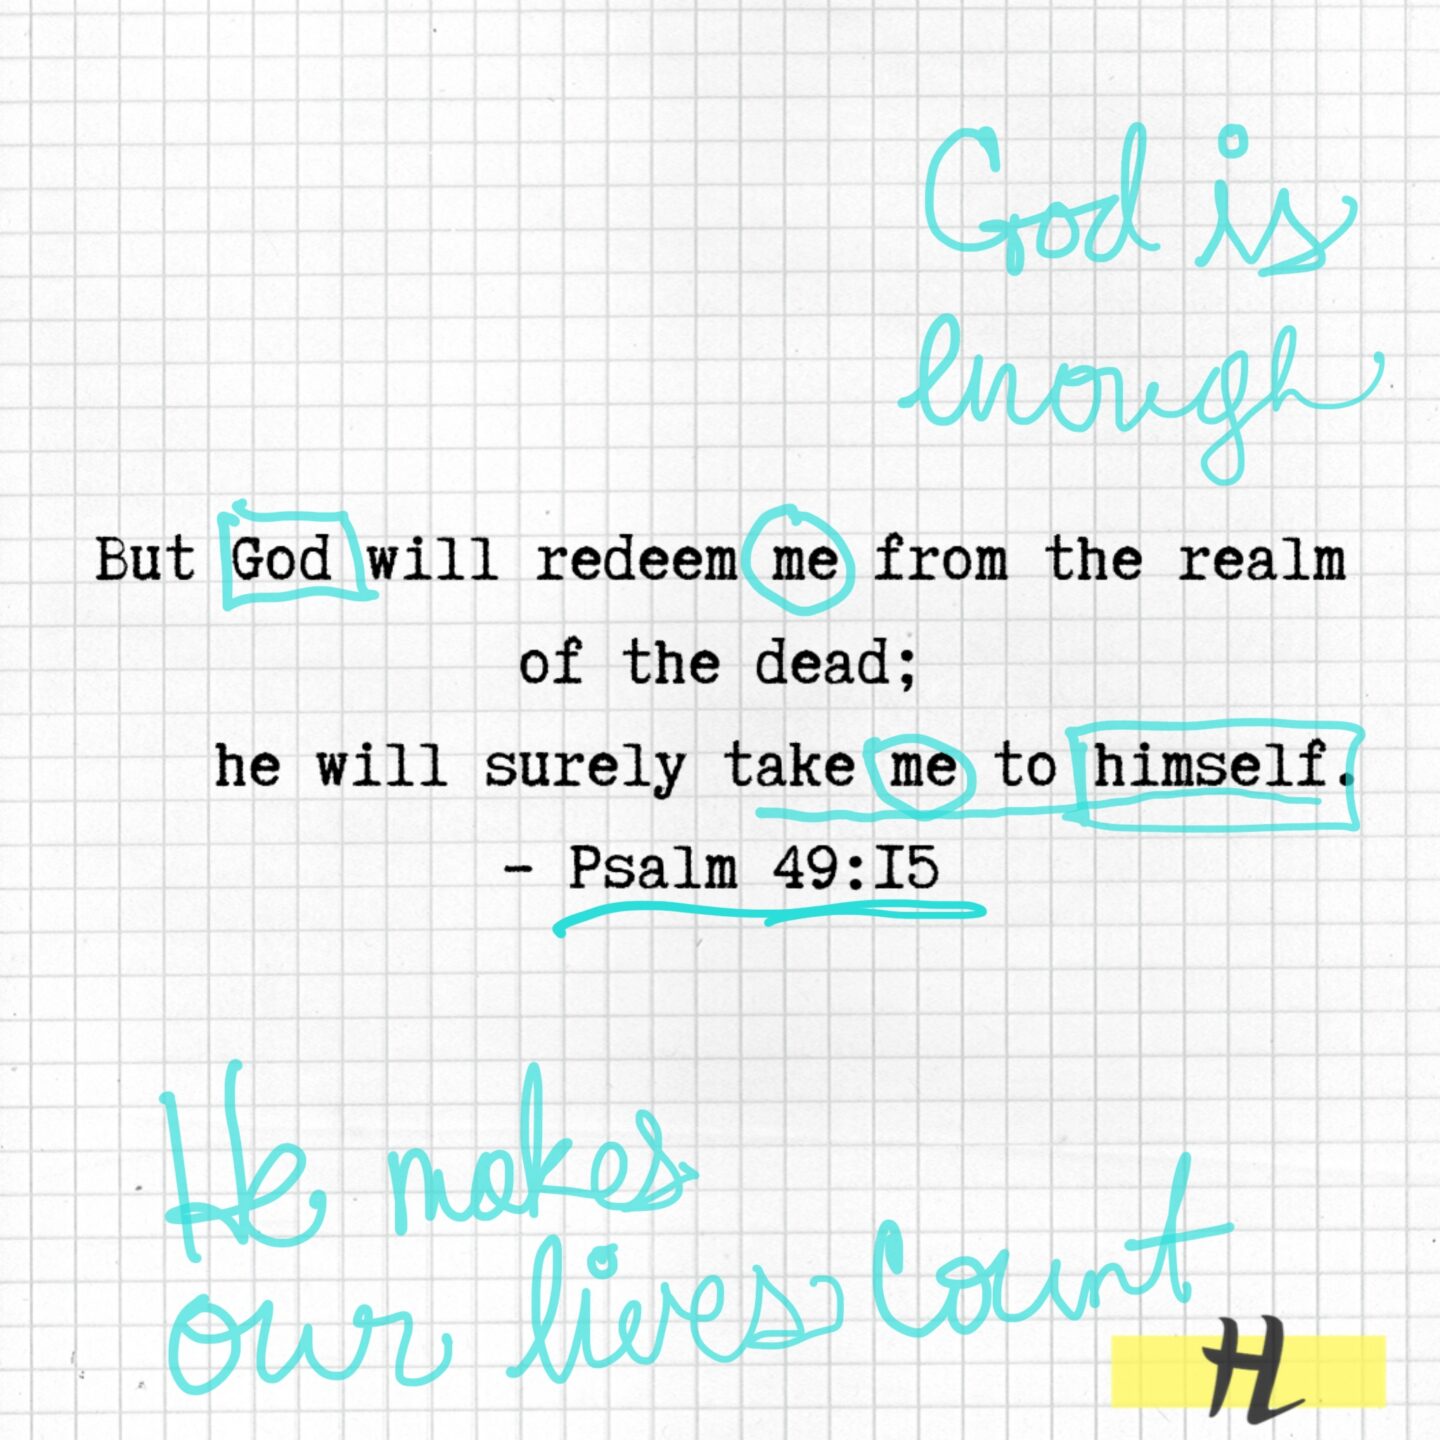 God is
enough
But God will redeem me from the realm
of the dead;
he will surely take me to himself.
- Psalm 49:15
He makes
our lives count
HL